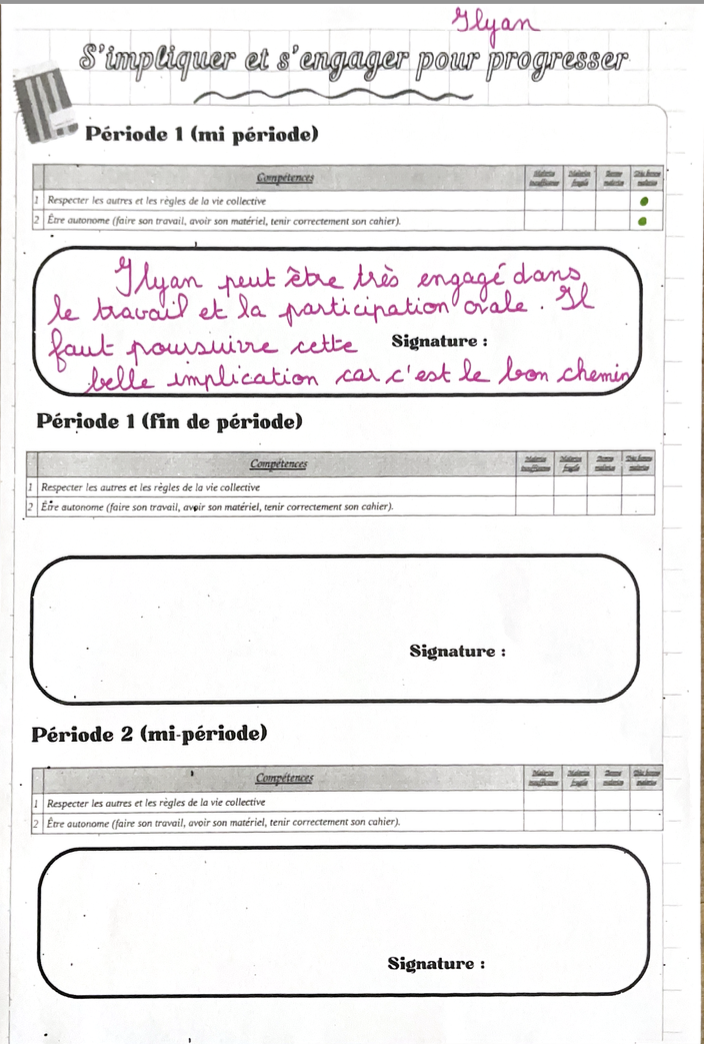 Ilyan
S'impliquer et s'engager pour progresser
Période 1 (mi période)
Compétences Maîtrise insuffisante Maîtrise fragile Bonne maîtrise Très bonne maîtrise
1 Respecter les autres et les règles de la vie collective
2 Être autonome (faire son travail, avoir son matériel, tenir correctement son cahier).
Ilyan peut être très engagé dans
le travail et la participation orale. Il
faut poursuivre cette Signature :
belle implication car c'est le bon chemin
Période 1 (fin de période)
Compétences Maîtrise insuffisante Maîtrise fragile Bonne maîtrise Très bonne maîtrise
1 Respecter les autres et les règles de la vie collective
2 Être autonome (faire son travail, avoir son matériel, tenir correctement son cahier).
Signature :
Période 2 (mi-période)
Compétences Maîtrise insuffisante Maîtrise fragile Bonne maîtrise Très bonne maîtrise
1 Respecter les autres et les règles de la vie collective
2 Être autonome (faire son travail, avoir son matériel, tenir correctement son cahier).
Signature :